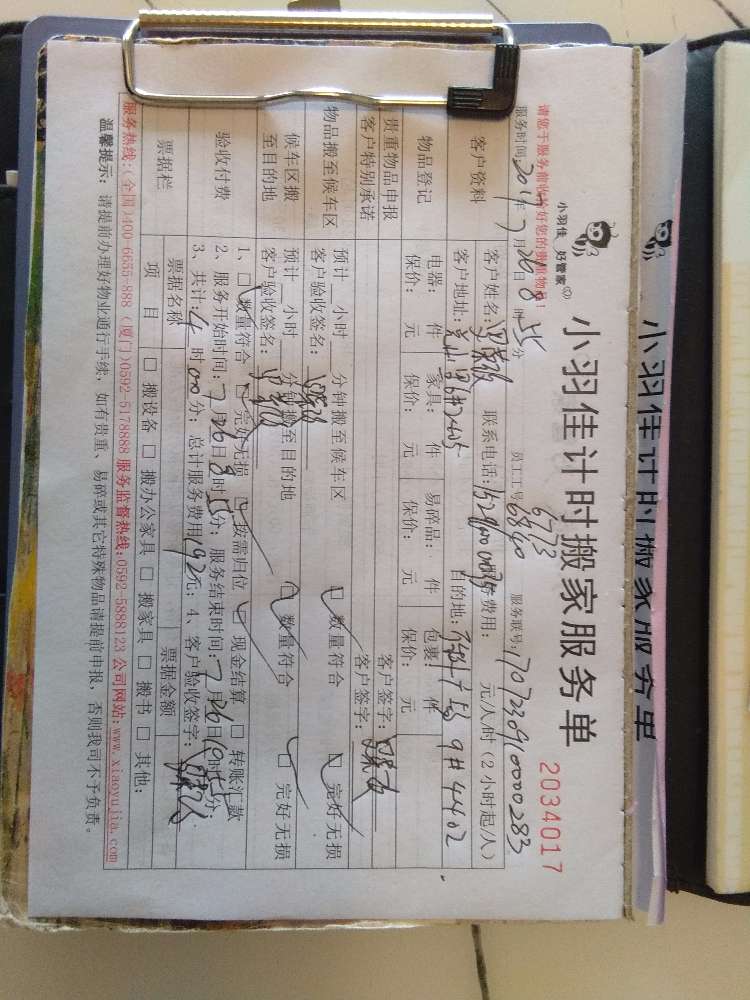 小羽佳 好管家
小羽佳计时搬家服务单
2034017
请您于服务前收拾好您的贵重物品!
服务时间:2017年7月26日8时55分 员工工号:6773 6840 服务联号:7072309100000283
客户资料
客户姓名: 联系电话: 服务费用: 元/人/时(2小时起/人)
客户地址: 目的地: 9#4402
物品登记
电器: 件 家具: 件 易碎品: 件 包裹: 件
保价: 元 保价: 元 保价: 元 保价: 元
贵重物品申报 客户签字:
客户特别承诺 客户签字:
物品搬至候车区
预计 小时 分钟搬至候车区 □ 数量符合 □ 完好无损
客户验收签名:
候车区搬至目的地
预计 小时 分钟搬至目的地 □ 数量符合 □ 完好无损
客户验收签名:
验收付费
1、□ 数量符合 □ 完好无损 □ 按需归位 □ 现金结算 □ 转账汇款
2、服务开始时间:7月26日8时55分;服务结束时间:7月26日 时 分;
3、共计:4时00分;总计服务费用192元;4、客户验收签字:
票据栏
票据名称 票据金额
项 目 □ 搬设备 □ 搬办公家具 □ 搬家具 □ 搬书 □ 其他:
服务热线:(全国)400-6655-888 (厦门)0592-5178888 服务监督热线:0592-5888123 公司网站:www.xiaoyujia.com
温馨提示:请提前办理好物业通行手续,如有贵重、易碎或其它特殊物品请提前申报,否则我司不予负责。
小羽佳计时搬家服务单